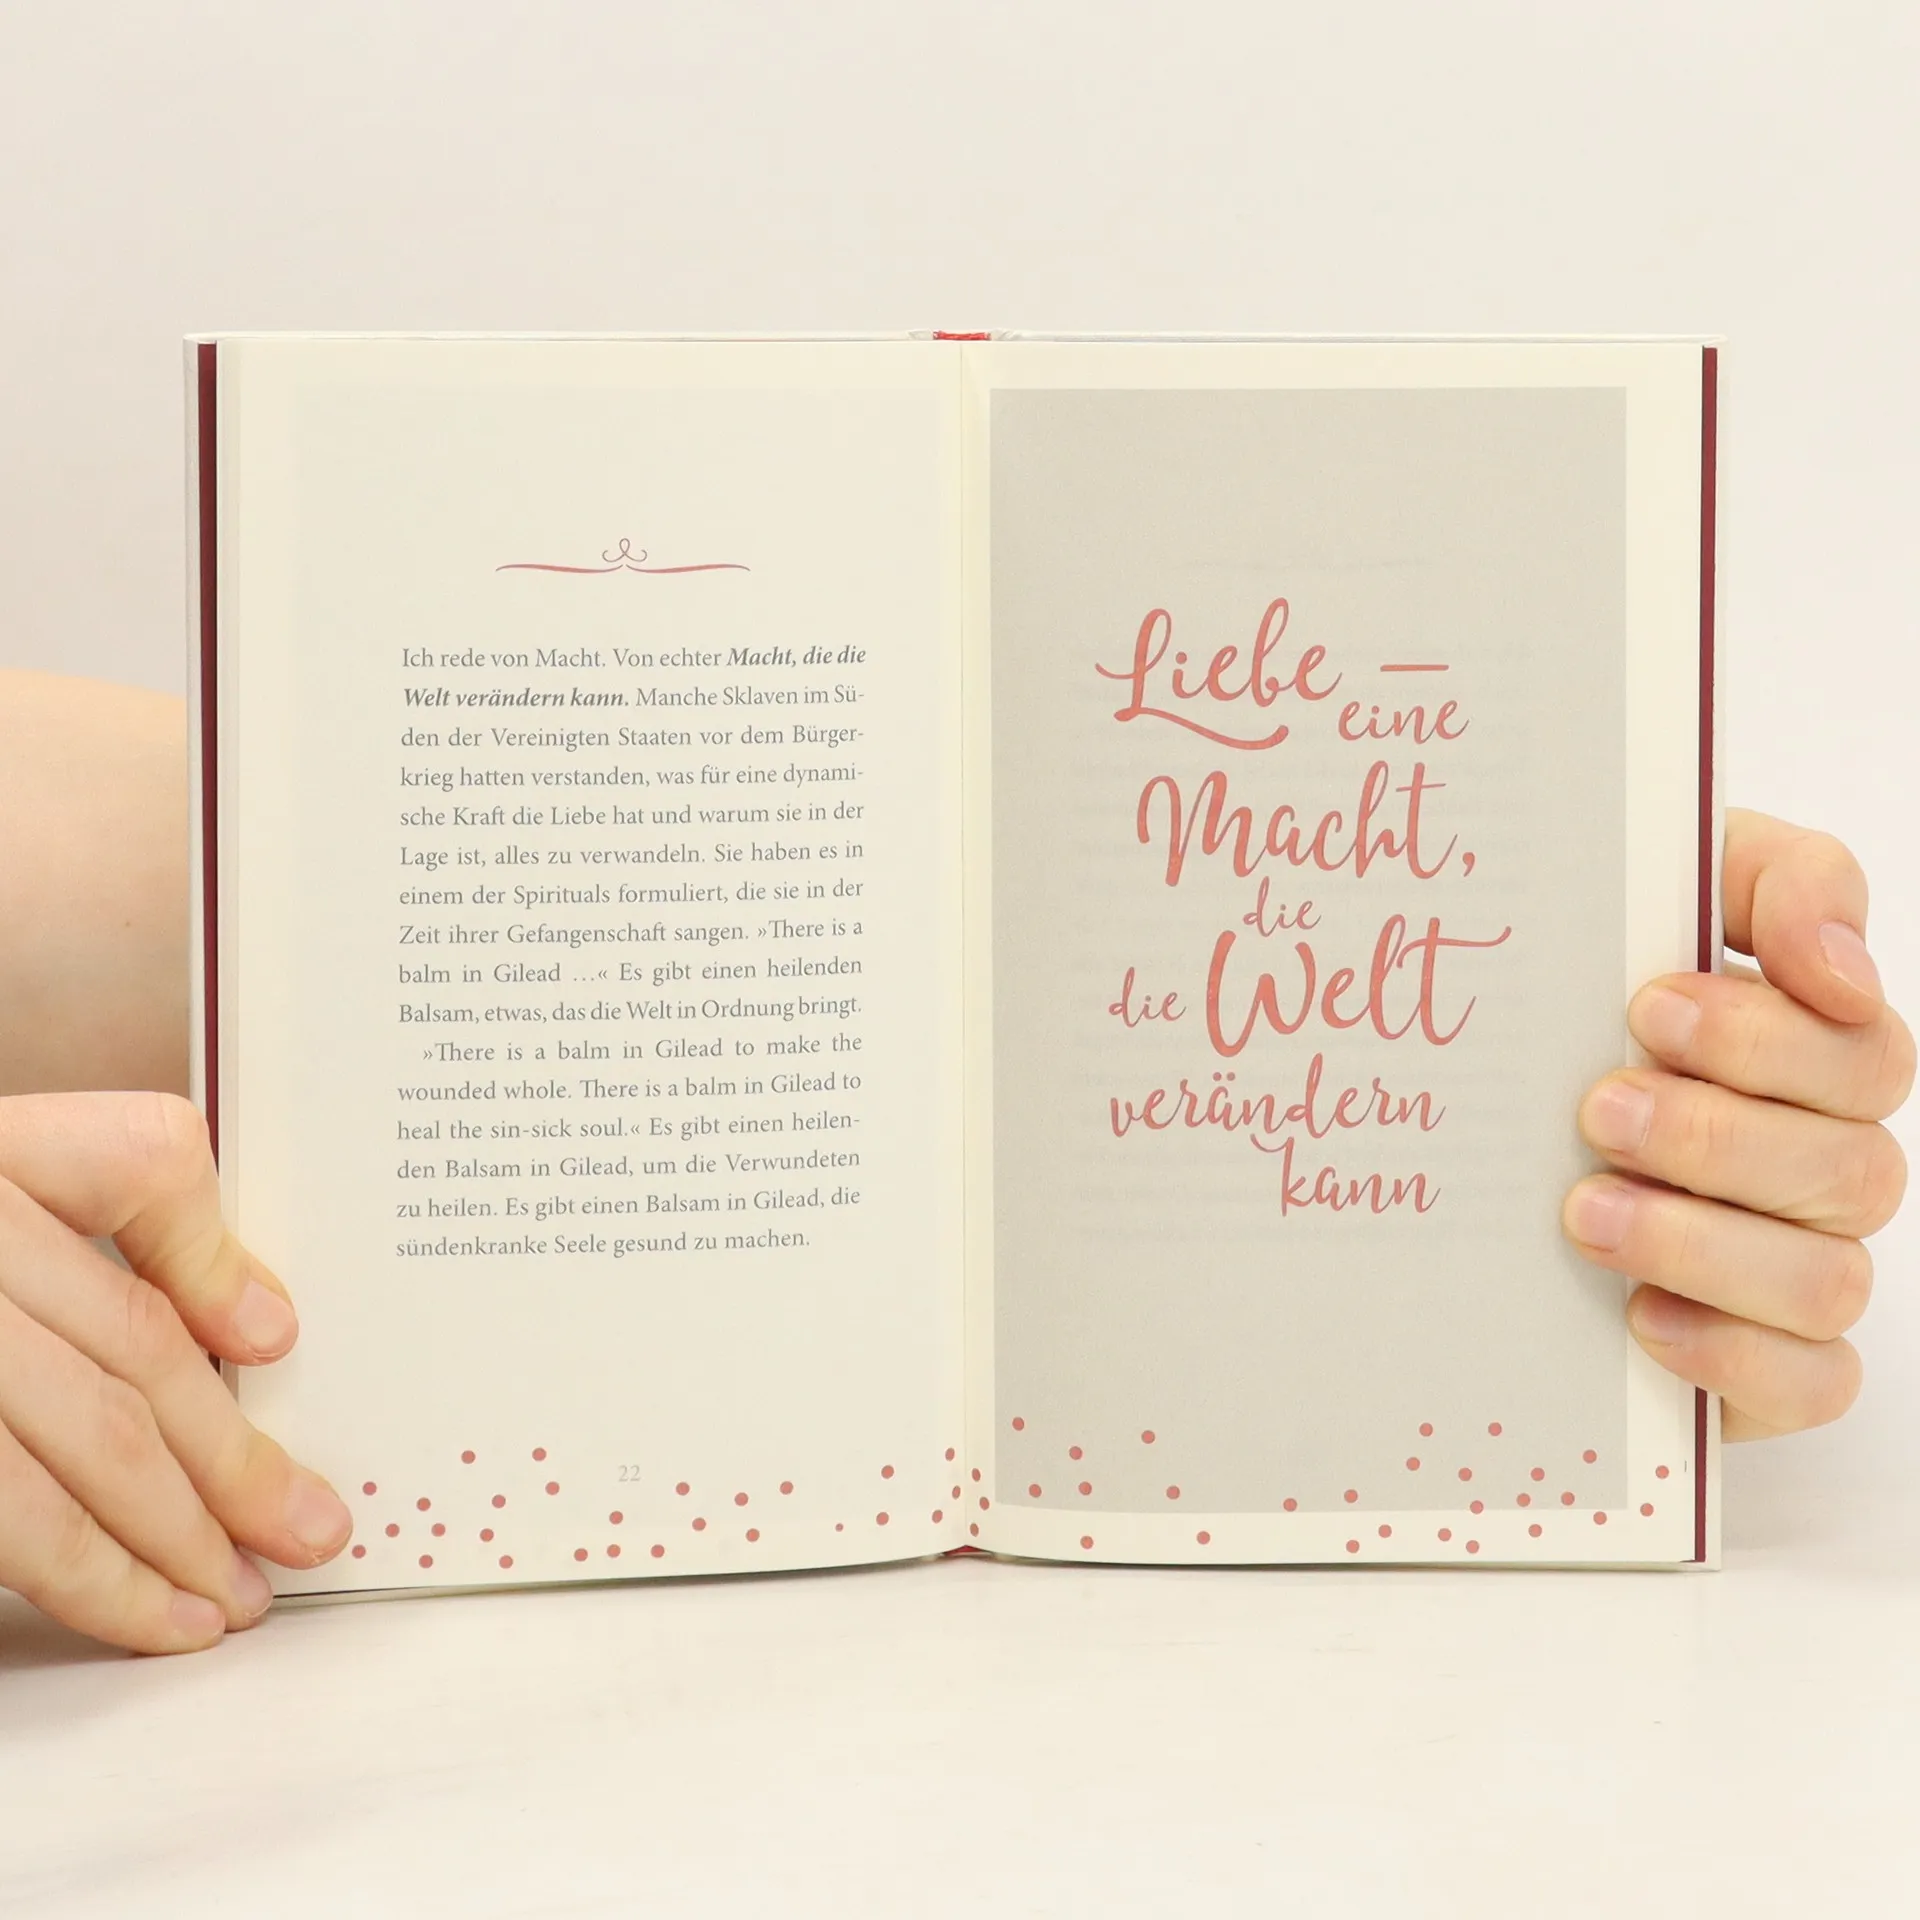 Ich rede von Macht. Von echter Macht, die die
Welt verändern kann. Manche Sklaven im Sü-
den der Vereinigten Staaten vor dem Bürger-
krieg hatten verstanden, was für eine dynami-
sche Kraft die Liebe hat und warum sie in der
Lage ist, alles zu verwandeln. Sie haben es in
einem der Spirituals formuliert, die sie in der
Zeit ihrer Gefangenschaft sangen. »There is a
balm in Gilead …« Es gibt einen heilenden
Balsam, etwas, das die Welt in Ordnung bringt.
»There is a balm in Gilead to make the
wounded whole. There is a balm in Gilead to
heal the sin-sick soul.« Es gibt einen heilen-
den Balsam in Gilead, um die Verwundeten
zu heilen. Es gibt einen Balsam in Gilead, die
sündenkranke Seele gesund zu machen.
22
Liebe –
eine
Macht,
die
die Welt
verändern
kann